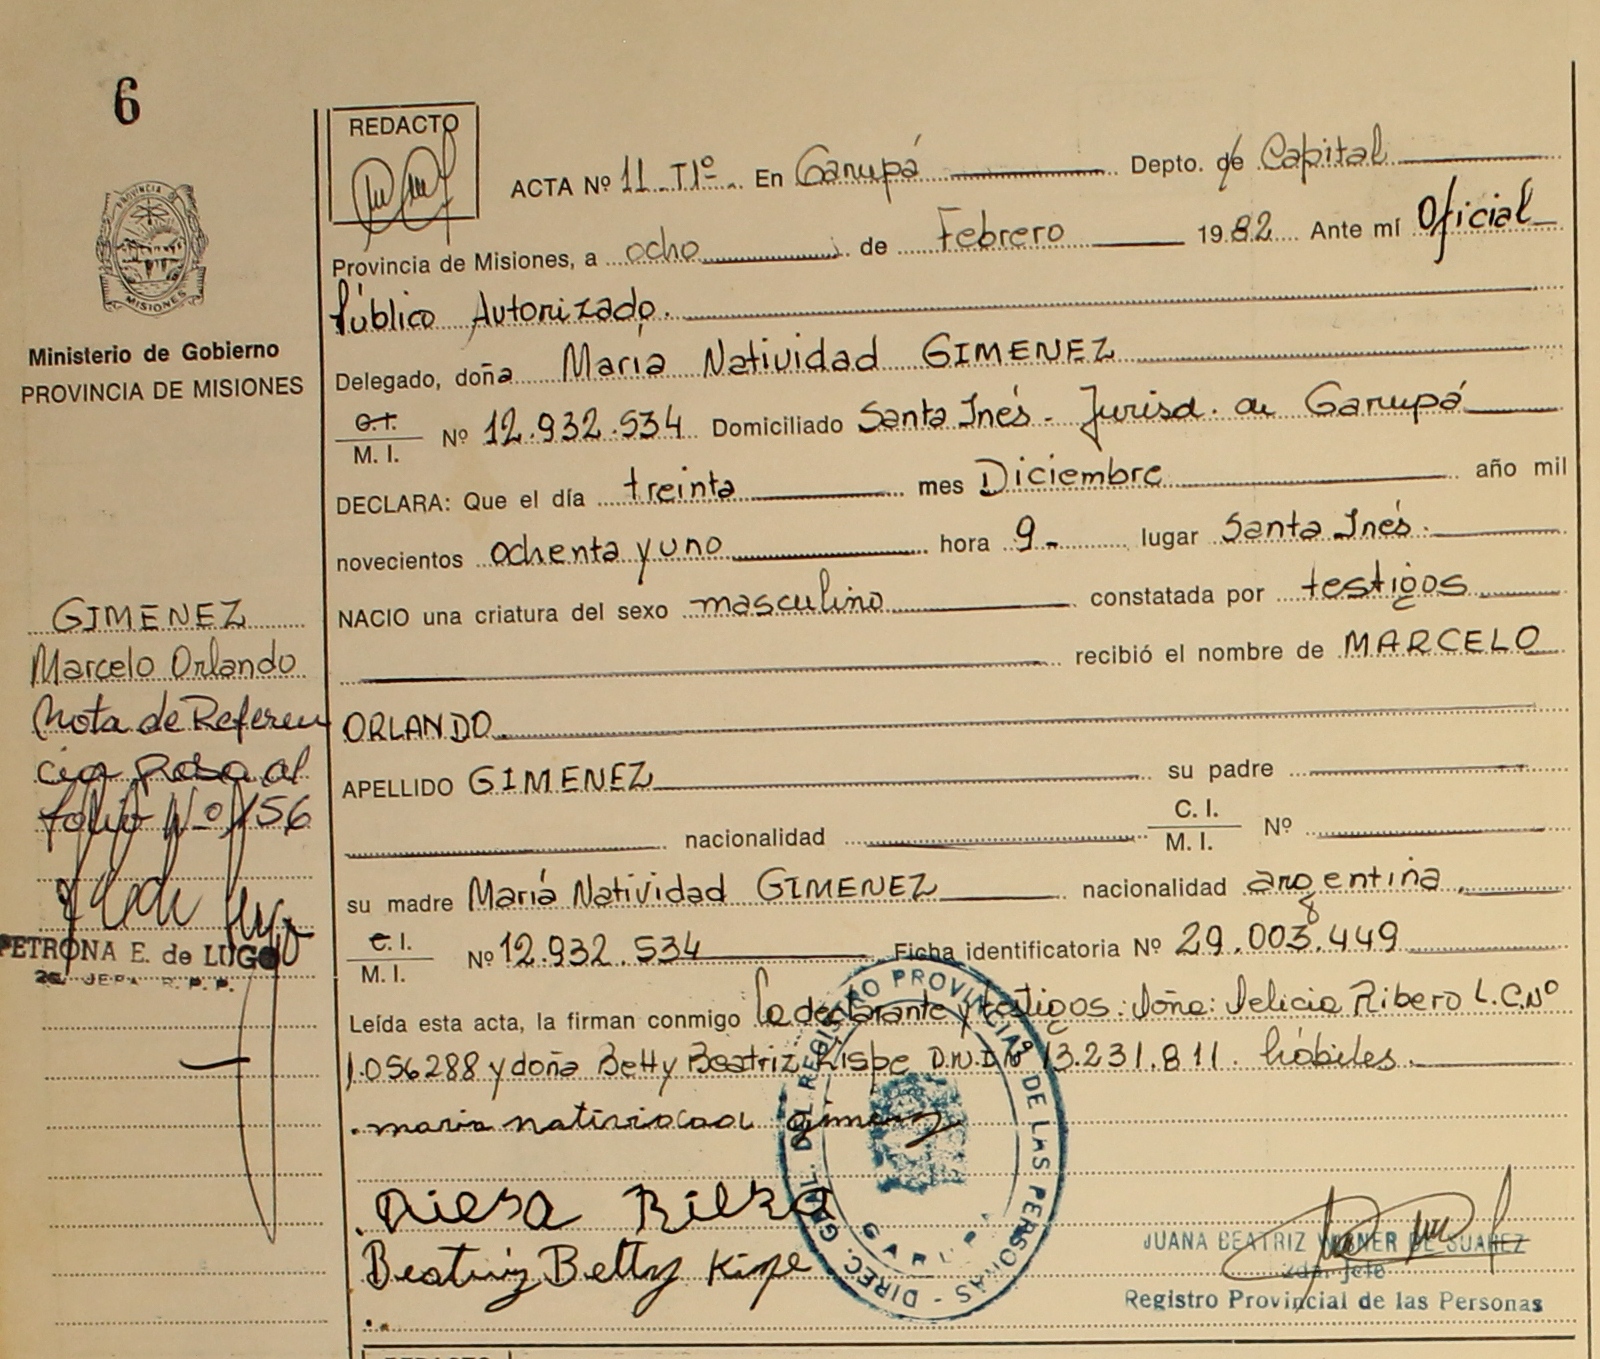 6
REDACTO
ACTA Nº 11 - T1º - En Garupá Depto. de Capital
Provincia de Misiones, a ocho de Febrero 1982 Ante mí Oficial
Público Autorizado.
PROVINCIA DE
MISIONES
Ministerio de Gobierno
PROVINCIA DE MISIONES
Delegado, doña María Natividad GIMENEZ
C.I.
M. I. Nº 12.932.534 Domiciliado Santa Inés - Jurisd. de Garupá
DECLARA: Que el día treinta mes Diciembre año mil
novecientos ochenta y uno hora 9- lugar Santa Inés.
NACIO una criatura del sexo masculino constatada por testigos
recibió el nombre de MARCELO
ORLANDO
APELLIDO GIMENEZ su padre
nacionalidad C. I.
M. I. Nº
su madre María Natividad GIMENEZ nacionalidad argentina,
C. I.
M. I. Nº 12.932.534 Ficha identificatoria Nº 29.003.449
Leída esta acta, la firman conmigo la declarante y testigos: doña: Delicia Ribero L.C.Nº
1.056288 y doña Betty Beatriz Kispe D.N.I.Nº 13.231.811. hábiles.
maria natividad gimenez
Beatriz Betty
GIMENEZ
Marcelo Orlando
Nota de Referen
cia pasa al
folio Nº 156
PETRONA E. de LUGO
2a. JEFA R. P. P.
DIREC. GRAL. DEL REGISTRO PROVINCIAL DE LAS PERSONAS -
GARUPA
JUANA BEATRIZ DE SUAREZ
2da. Jefe
Registro Provincial de las Personas
REDACTO